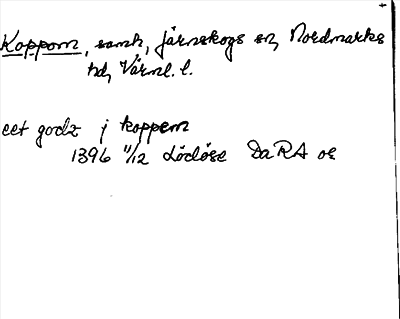 Koppom, samh, Järnskogs sn, Nordmarks
hd, Värml. l.
eet godz j koppem
1396 11/12 Lödöse DaRA or